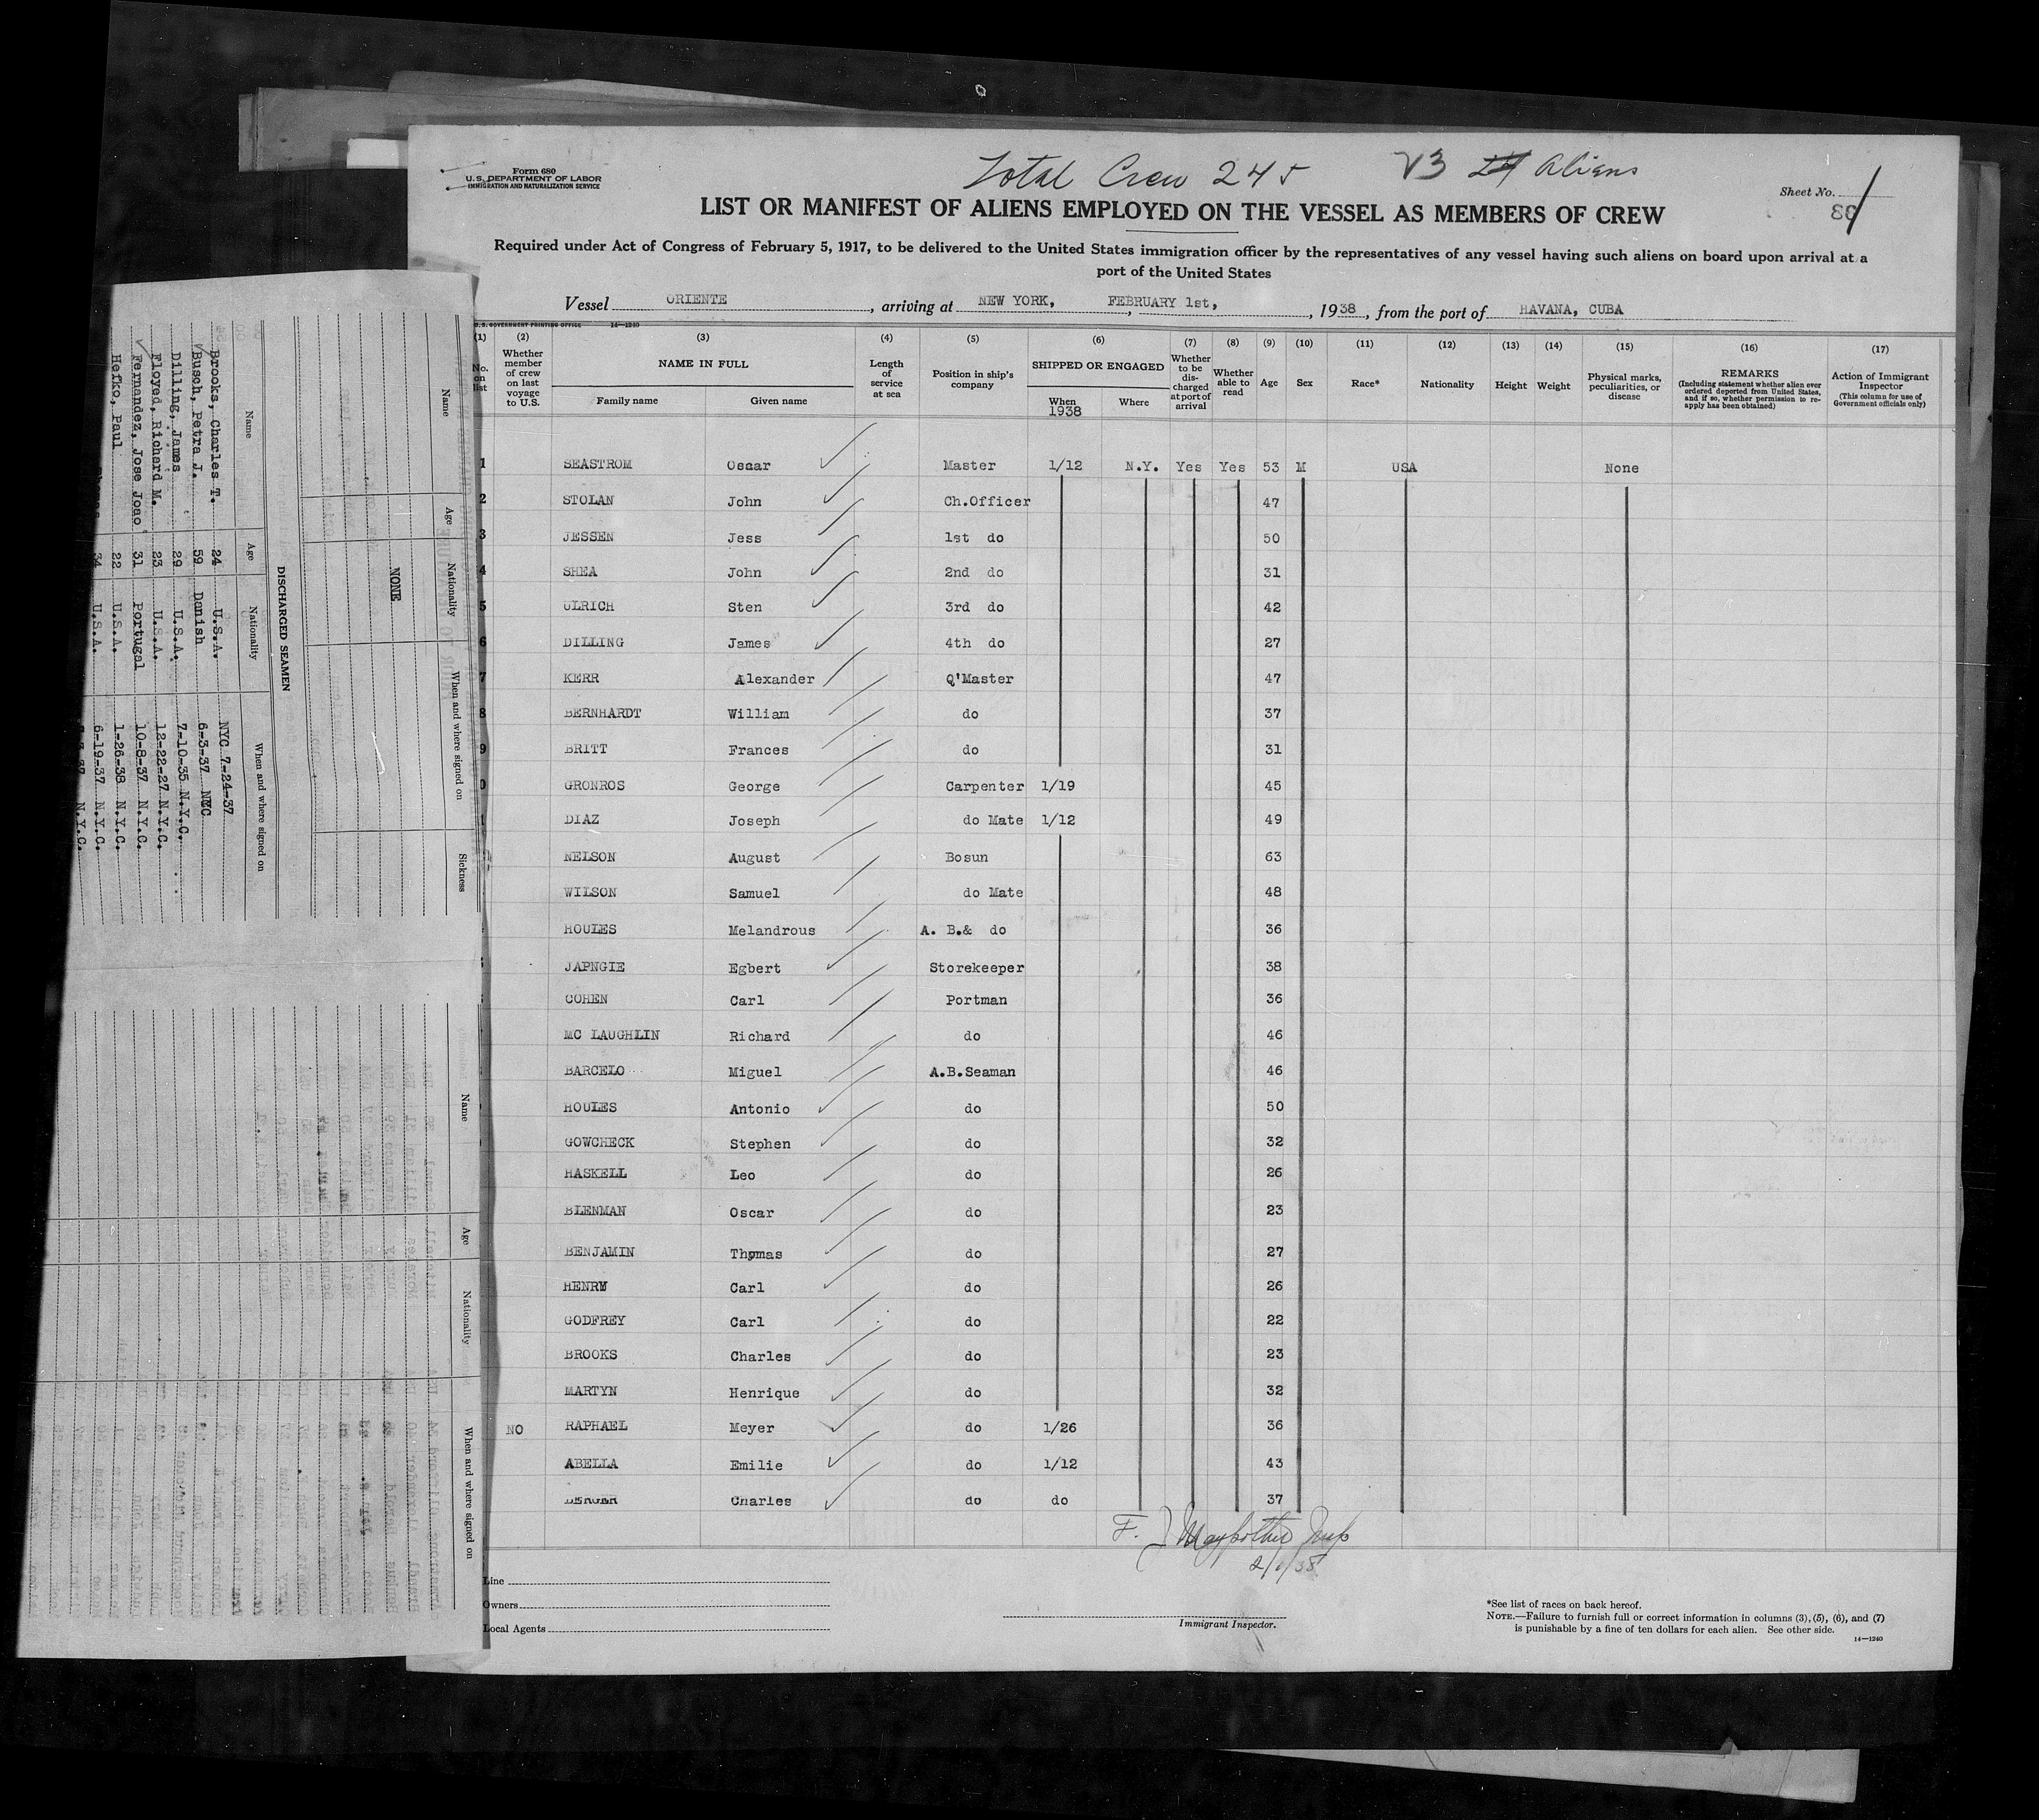 Total Crew 245
Aliens
Form 680
U.S. DEPARTMENT OF LABOR
IMMIGRATION AND NATURALIZATION SERVICE
Sheet No.
LIST OR MANIFEST OF ALIENS EMPLOYED ON THE VESSEL AS MEMBERS OF CREW
Required under Act of Congress of February 5, 1917, to be delivered to the United States immigration officer by the representatives of any vessel having such aliens on board upon arrival at a
port of the United States
Vessel ORIENTE, arriving at NEW YORK, FEBRUARY 1st, 1938, from the port of HAVANA, CUBA
U.S. GOVERNMENT PRINTING OFFICE 14—1240
(1) (2) (3) (4) (5) (6) (7) (8) (9) (10) (11) (12) (13) (14) (15) (16) (17)
No. on list
Whether member of crew on last voyage to U.S.
NAME IN FULL
Family name Given name
Length of service at sea
Position in ship's company
SHIPPED OR ENGAGED
When Where
1938
Whether to be discharged at port of arrival
Whether able to read
Age
Sex
Race*
Nationality
Height
Weight
Physical marks, peculiarities, or disease
REMARKS
(Including statement whether alien ever ordered deported from United States, and if so, whether permission to reapply has been obtained)
Action of Immigrant Inspector
(This column for use of Government officials only)
1 SEASTROM Oscar Master 1/12 N.Y. Yes Yes 53 M USA None
2 STOLAN John Ch.Officer 47
3 JESSEN Jess 1st do 50
4 SHEA John 2nd do 31
5 ULRICH Sten 3rd do 42
6 DILLING James 4th do 27
7 KERR Alexander Q'Master 47
8 BERNHARDT William do 37
9 BRITT Frances do 31
0 GRONROS George Carpenter 1/19 45
DIAZ Joseph do Mate 1/12 49
NELSON August Bosun 63
WILSON Samuel do Mate 48
HOULES Melandrous A. B.& do 36
JAPNGIE Egbert Storekeeper 38
COHEN Carl Portman 36
MC LAUGHLIN Richard do 46
BARCELO Miguel A.B.Seaman 46
HOULES Antonio do 50
GOWCHECK Stephen do 32
HASKELL Leo do 26
BLENMAN Oscar do 23
BENJAMIN Thomas do 27
HENRY Carl do 26
GODFREY Carl do 22
BROOKS Charles do 23
MARTYN Henrique do 32
NO RAPHAEL Meyer do 1/26 36
ABELLA Emilie do 1/12 43
BERGER Charles do do 37
2/1/38
Line
Owners
Local Agents
Immigrant Inspector.
*See list of races on back hereof.
NOTE.—Failure to furnish full or correct information in columns (3), (5), (6), and (7)
is punishable by a fine of ten dollars for each alien. See other side.
14—1240
Name Age Nationality When and where signed on Sickness
NONE
DISCHARGED SEAMEN
Name Age Nationality When and where signed on
Brooks, Charles T. 24 U.S.A. NYC 7-24-37
Busch, Petra J. 59 Danish 6-3-37 NYC
Dilling, James 29 U.S.A. 7-10-35 N.Y.C.
Floyed, Richard M. 23 U.S.A. 12-22-27 N.Y.C.
Fernandez, Jose Joao 31 Portugal 10-8-37 N.Y.C.
Hefko, Paul 22 U.S.A. 1-26-38 N.Y.C.
34 U.S.A. 6-19-37 N.Y.C.
N.Y.C.
Name Age Nationality When and where signed on